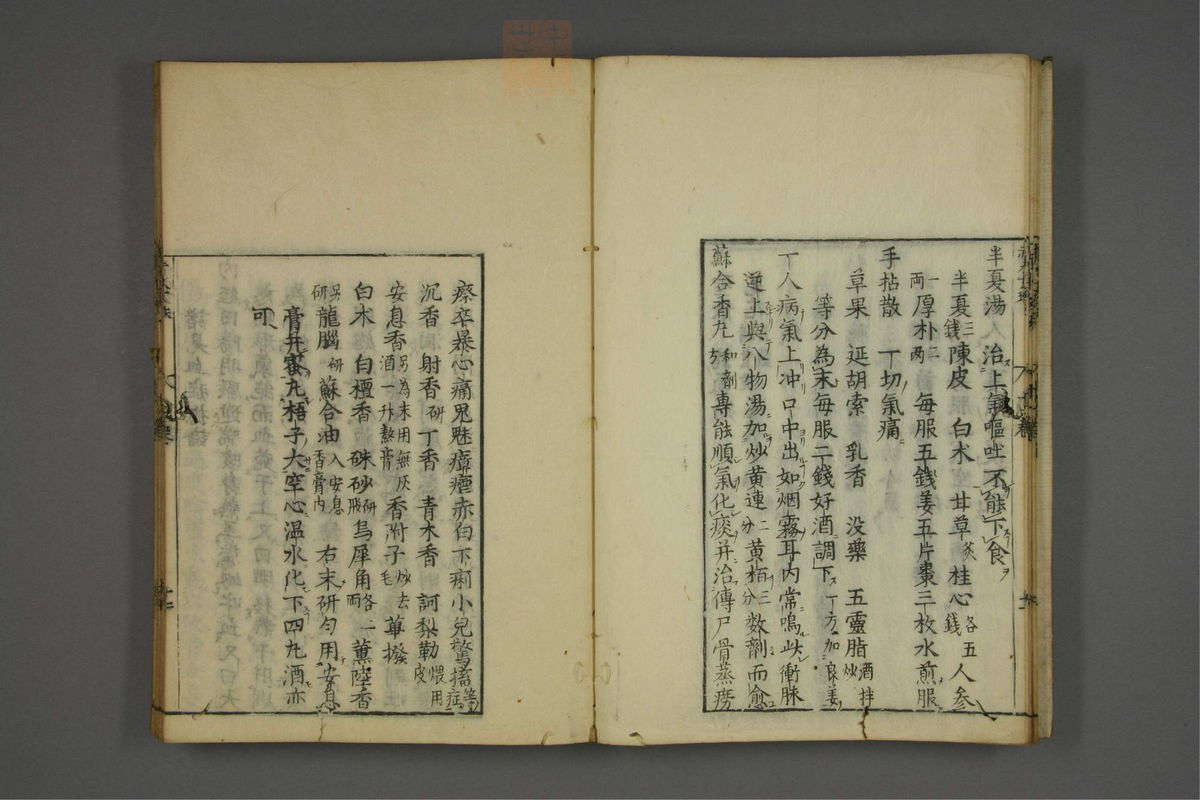 半夏湯　治上氣嘔吐不能下食
半夏三錢　陳皮　白朮　甘草炙　桂心各五錢　人參
一兩　厚朴二兩　每服五錢姜五片棗三枚水煎服
手拈散　丁切氣痛
草果　延胡索　乳香　没藥　五靈脂酒拌炒
等分為末每服二錢好酒調下　丁方加良姜
丁人病氣上冲口中出如烟霧耳内常鳴此衝脉
逆上與八物湯加炒黄連二分黄栢三分数劑而愈
蘇合香丸和劑方　專能順氣化痰并治傳尸骨蒸癆
瘵卒暴心痛鬼魅瘴瘧赤白下痢小兒驚搐等症
沉香　射香研　丁香　青木香　訶梨勒煨用皮
安息香另為末用無灰酒一升熬膏　香附子炒去毛　蓽撥
白朮　白檀香　硃砂研飛　烏犀角各二兩　薰陸香
另研　龍腦研　蘇合油入安息香膏内　右末研勻用安息
膏并蜜丸梧子大空心温水化下四丸酒亦
可